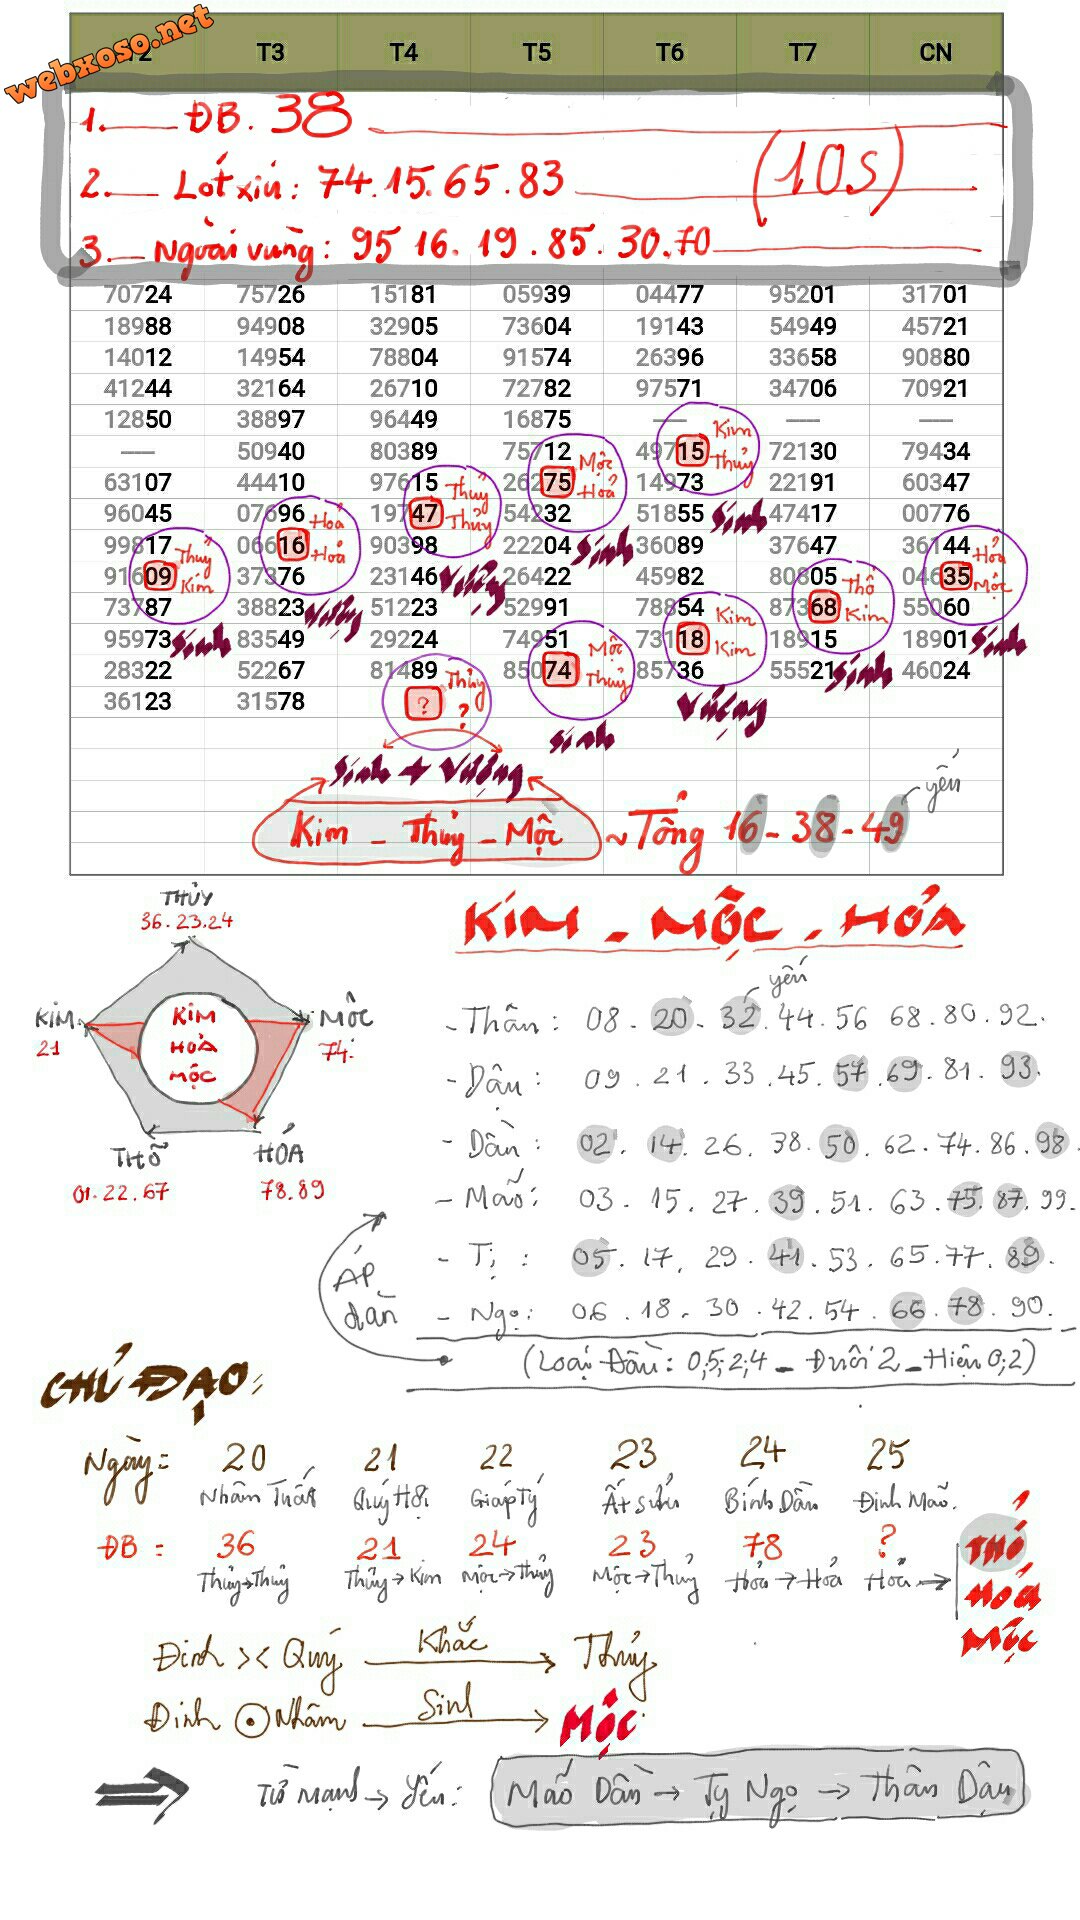 webxoso.net
T2 T3 T4 T5 T6 T7 CN
1. ĐB. 38
2. Lót xiú: 74.15.65.83 (10s)
3. Ngoài vùng: 95 16. 19. 85. 30. 70
70724 75726 15181 05939 04477 95201 31701
18988 94908 32905 73604 19143 54949 45721
14012 14954 78804 91574 26396 33658 90880
41244 32164 26710 72782 97571 34706 70921
12850 38897 96449 16875 — — —
— 50940 80389 75712 49715 Kim Thủy 72130 79434
63107 44410 97615 26275 Mộc Hoả 14973 22191 60347
96045 07696 19747 Thủy Thủy 54232 51855 Sinh 47417 00776
99817 06616 Hoả Hoả 90398 22204 Sinh 36089 37647 36144
91609 Thủy Kim 37376 23146 Vượng 26422 45982 80805 04635 Hỏa Mộc
73787 38823 Vượng 51223 52991 78854 87368 Thổ Kim 55060
95973 Sinh 83549 29224 74951 73118 Kim Kim 18915 18901 Sinh
28322 52267 81489 85074 Mộc Thủy 85736 55521 Sinh 46024
36123 31578 ? Thủy ? Sinh Vượng
Sinh + Vượng
Kim - Thủy - Mộc ~ Tổng 16 - 38 - 49 yếu
THỦY
36.23.24
KIM
21
MỘC
74
KIM
HOẢ
MỘC
THỔ
01.22.67
HỎA
78.89
KIM - MỘC - HỎA
yếu
- Thân: 08. 20. 32. 44. 56 68. 80. 92.
- Dậu: 09. 21. 33. 45. 57. 69. 81. 93.
- Dần: 02. 14. 26. 38. 50. 62. 74. 86. 98.
- Mão: 03. 15. 27. 39. 51. 63. 75. 87. 99.
- Tị: 05. 17. 29. 41. 53. 65. 77. 89.
- Ngọ: 06. 18. 30. 42. 54. 66. 78. 90.
ÁP dần
(Loại Đầu: 0,5;2,4 - Đuôi 2 - Hiệu 0;2)
CHỈ ĐẠO:
Ngày: 20 21 22 23 24 25
Nhâm Tuất Quý Hợi Giáp Tý Ất Sửu Bính Dần Đinh Mão.
ĐB: 36 21 24 23 78 ?
Thủy→Thủy Thủy→Kim Mộc→Thủy Mộc→Thủy Hỏa→Hỏa Hỏa→
THỔ
HOẢ
MỘC
Đinh >< Quý Khắc → Thủy
Đinh ⊙ Nhâm Sinh → MỘC
⇒ Từ mạnh → yếu: Mão Dần → Tỵ Ngọ → Thân Dậu